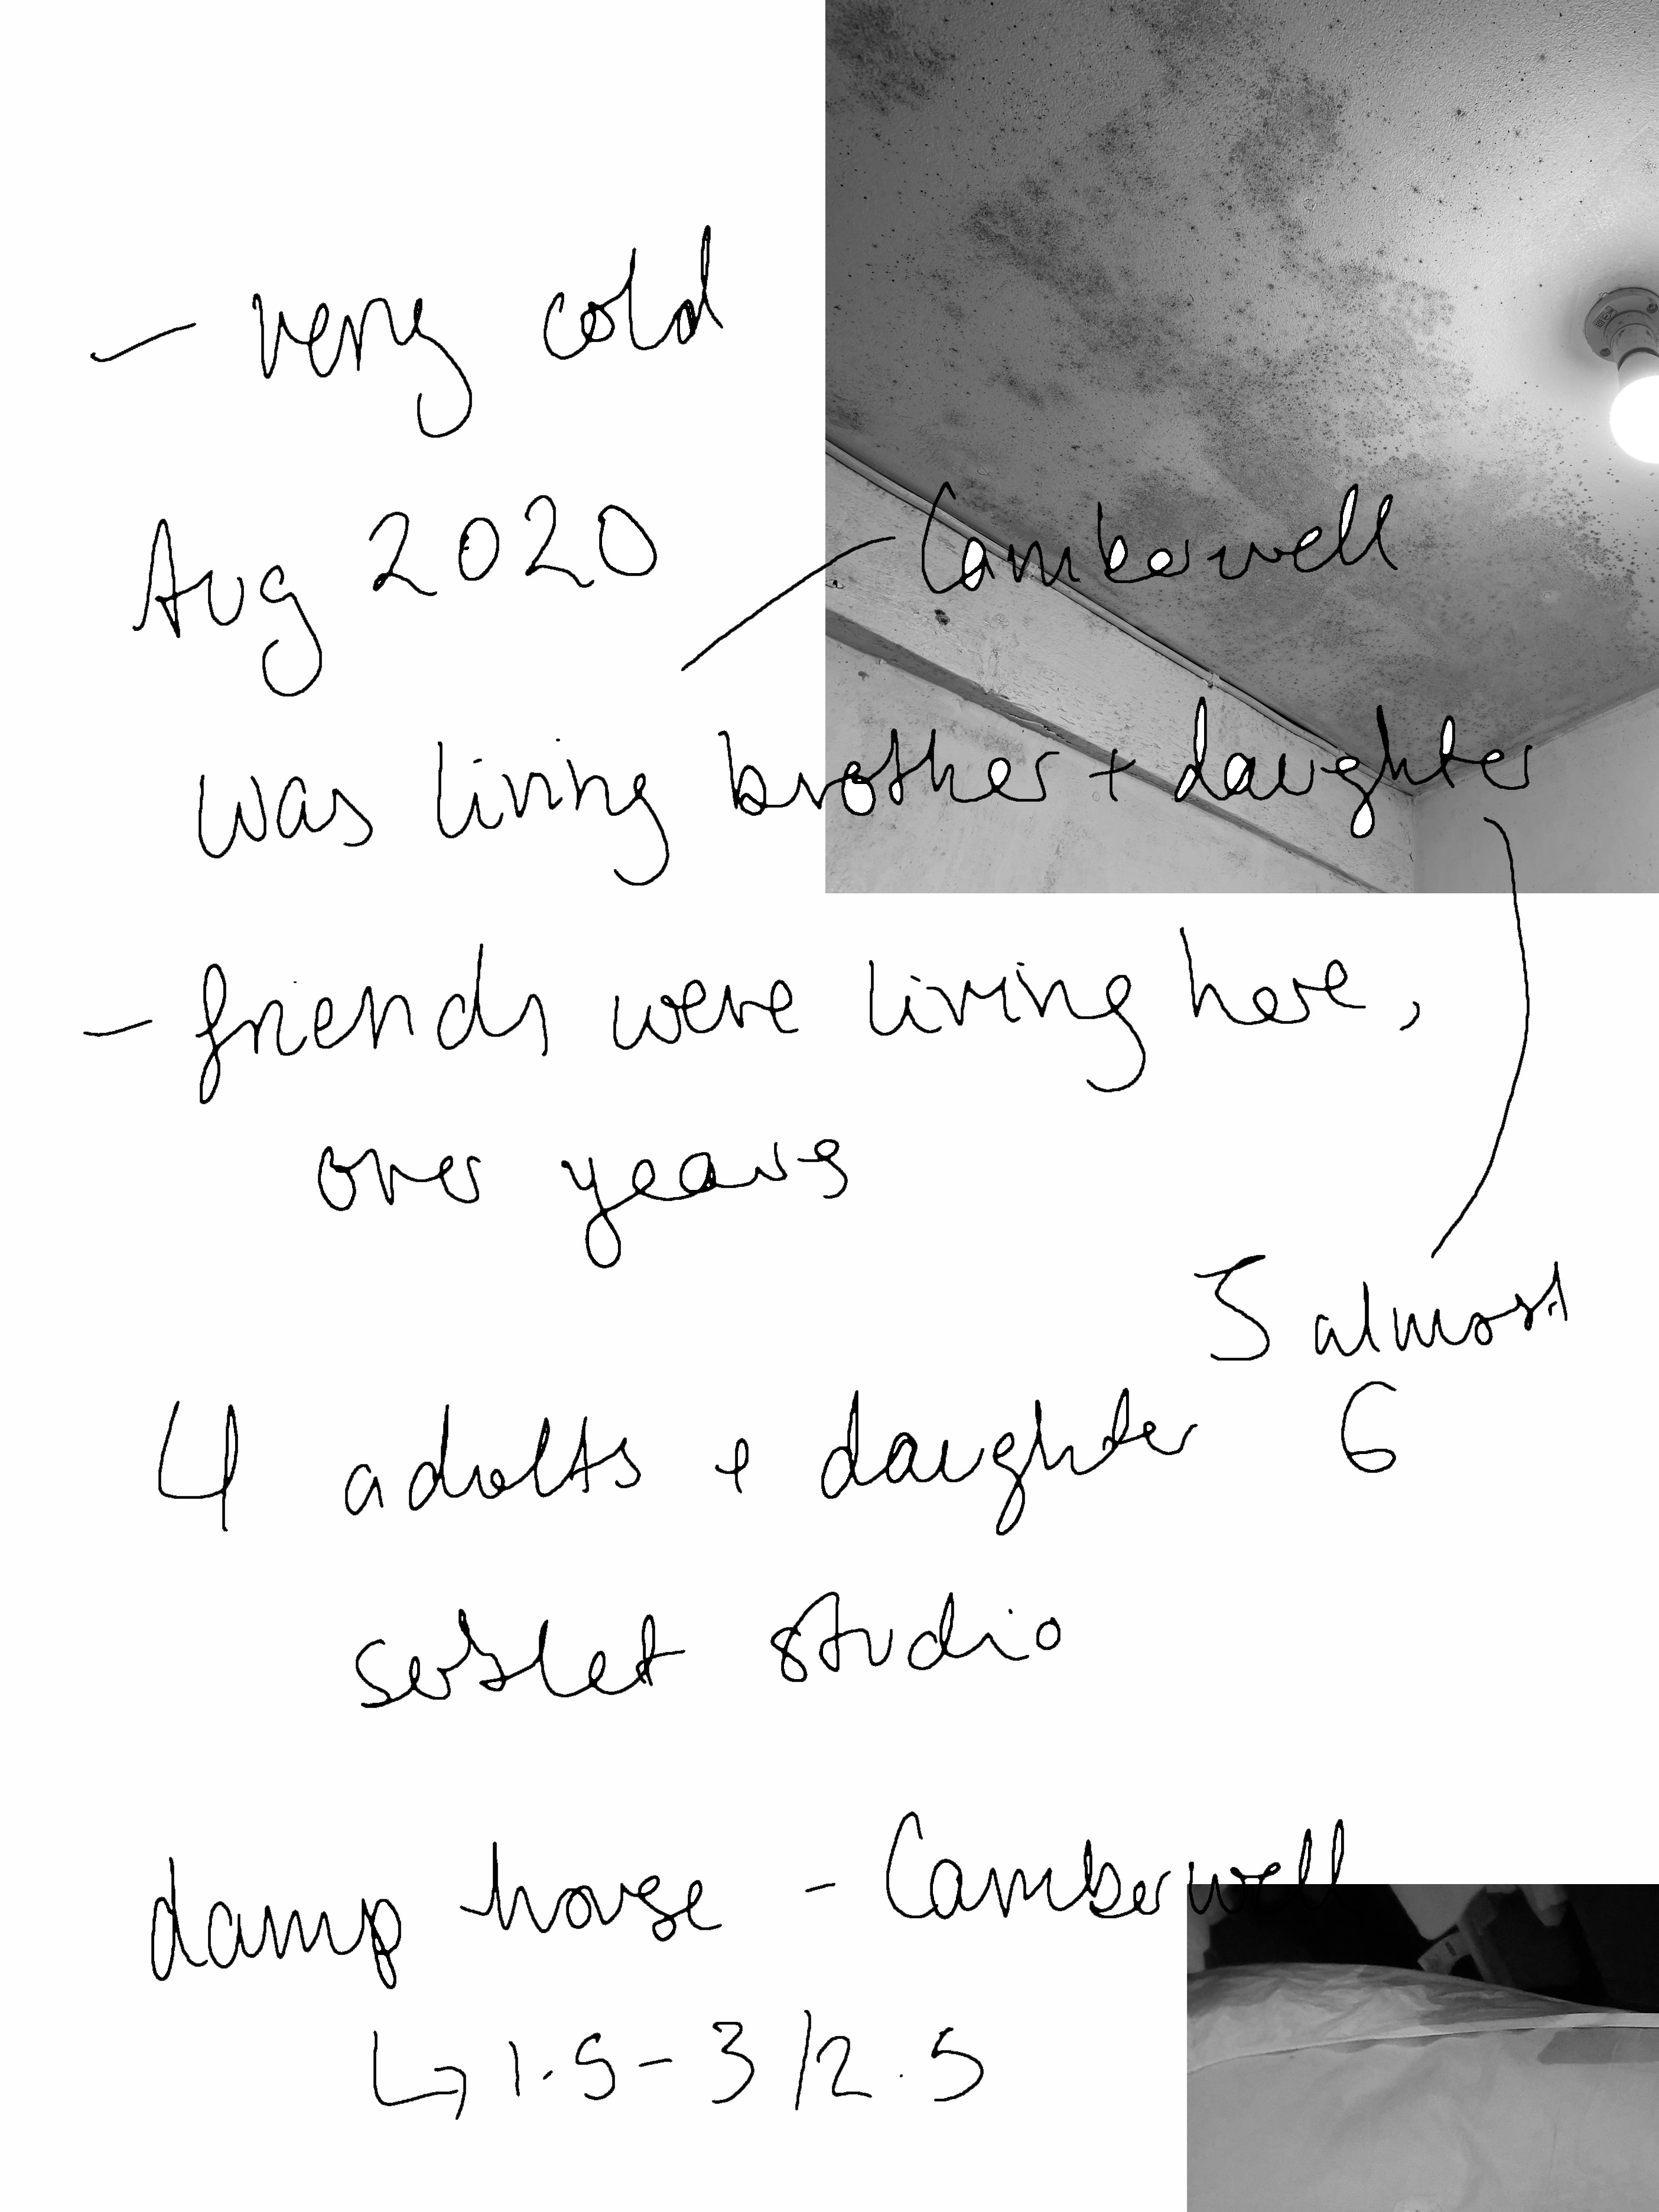 - very cold
Aug 2020 - Camberwell
was living brother + daughter
- friends were living here,
over years
5 almost
6
4 adults + daughter
sublet studio
damp house - Camberwell
↳ 1.5 - 3 / 2.5